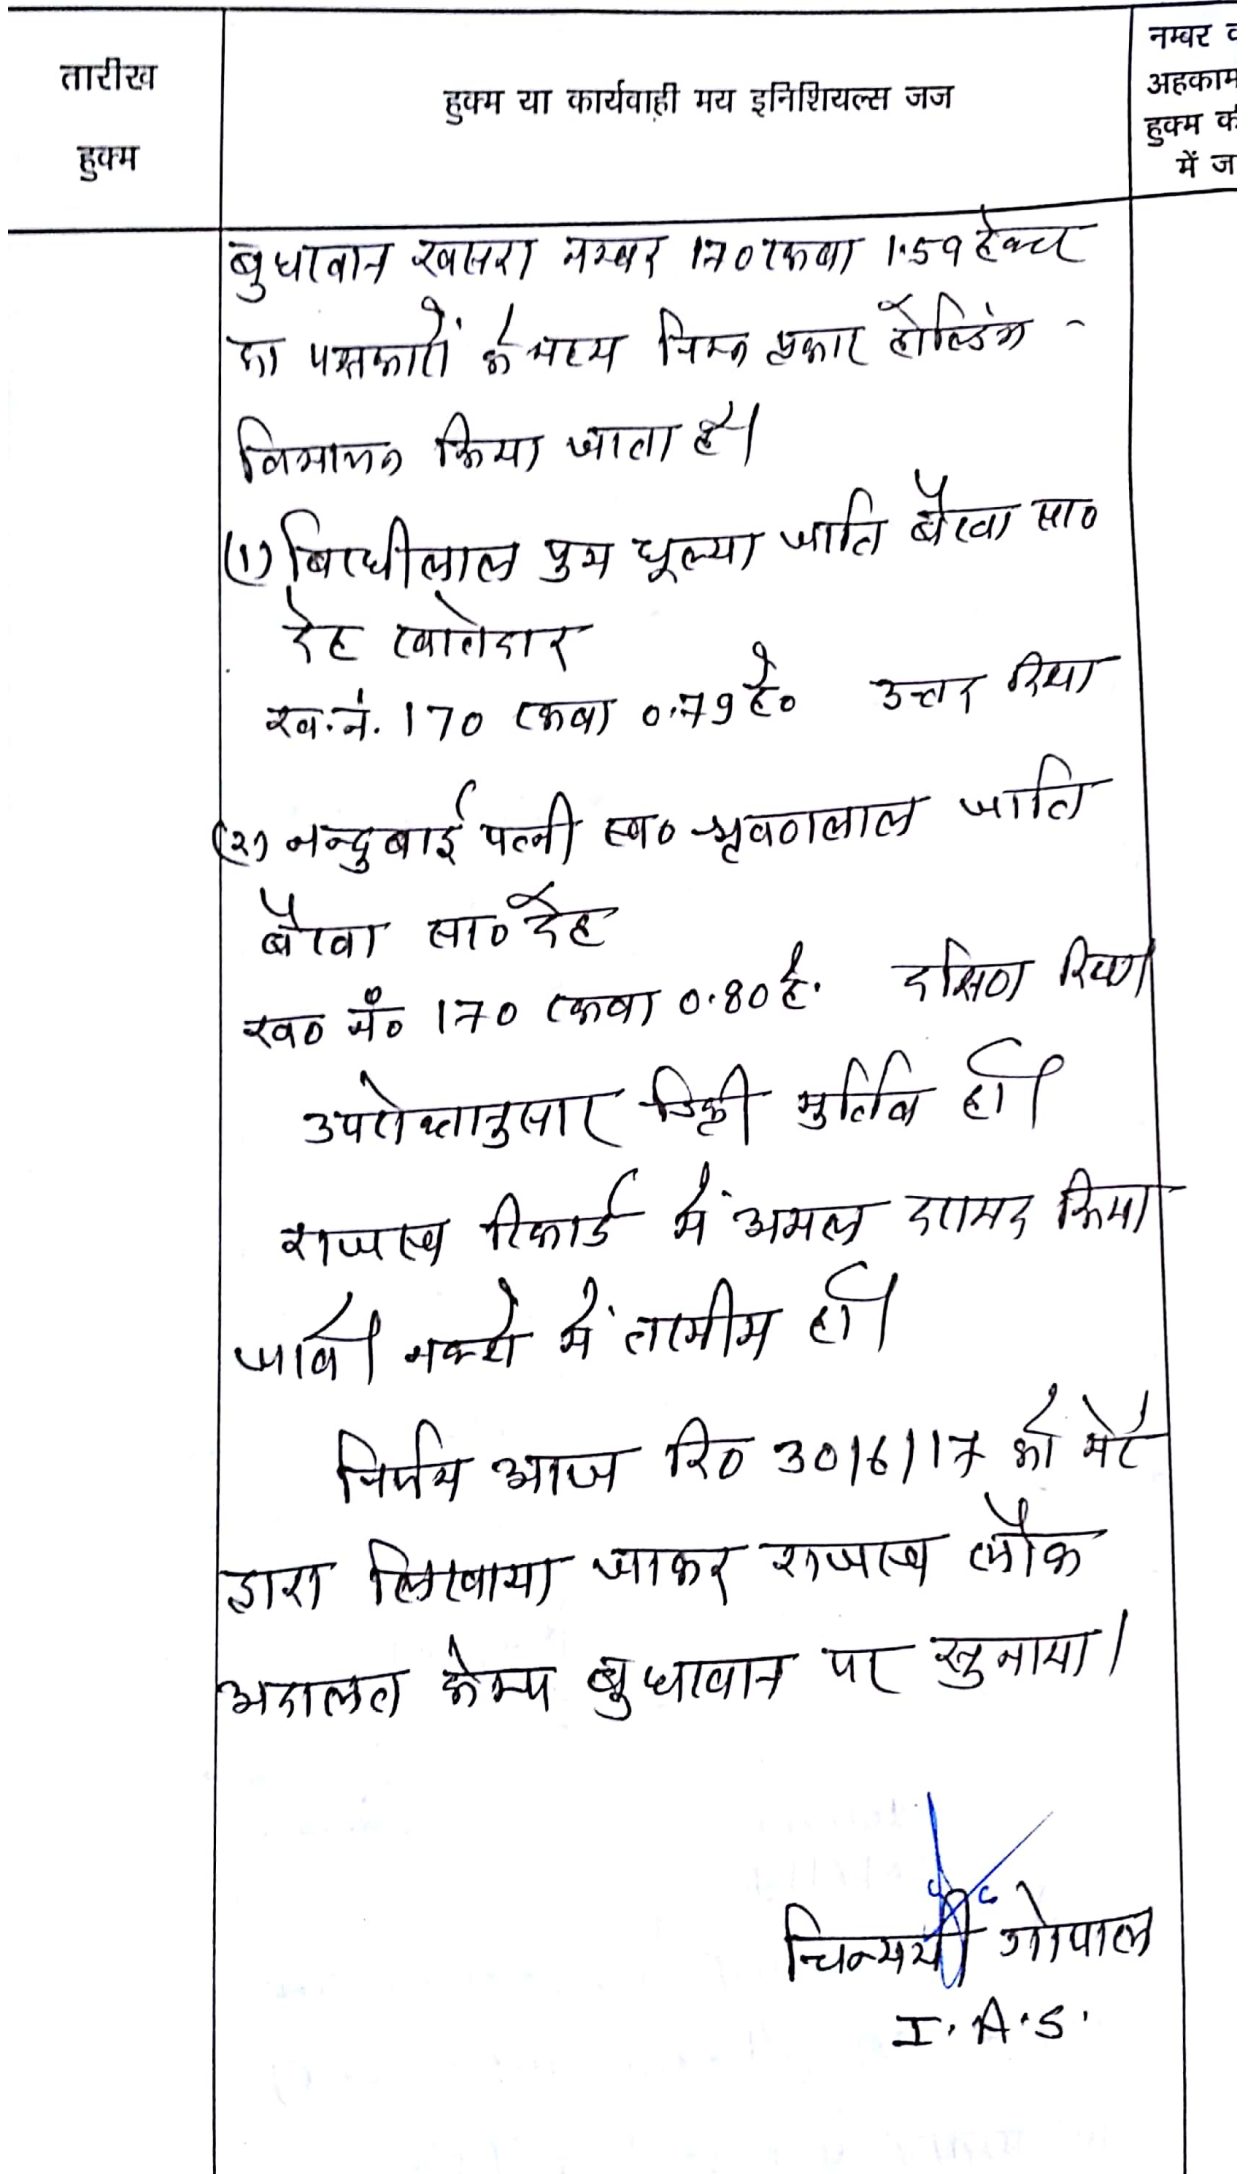 तारीख
हुक्म
हुक्म या कार्यवाही मय इनिशियल्स जज
नम्बर व
अहकाम
हुक्म की
में ज
बुधावान खसरा नम्बर 170 रकबा 1.59 हेक्टर
का पक्षकारों के मध्य निम्न प्रकार होल्डिंग -
विभाजन किया जाता है।
(1) बिरधीलाल पुत्र धूल्या जाति बैरवा सा०
देह खातेदार
ख.नं. 170 रकबा 0.79 है० उत्तर दिशा
(2) नन्दुबाई पत्नी स्व० श्रवणलाल जाति
बैरवा सा० देह
ख० नं० 170 रकबा 0.80 है. दक्षिण दिशा
उपरोक्तानुसार डिक्री मुर्तिब हो।
राजस्व रिकार्ड में अमल दरामद किया
जावे। नक्शे में तरमीम हो।
निर्णय आज दि० 30/6/17 को मेरे
द्वारा लिखाया जाकर राजस्व लोक
अदालत केम्प बुधावान पर सुनाया।
चिन्मयी गोपाल
I.A.S.